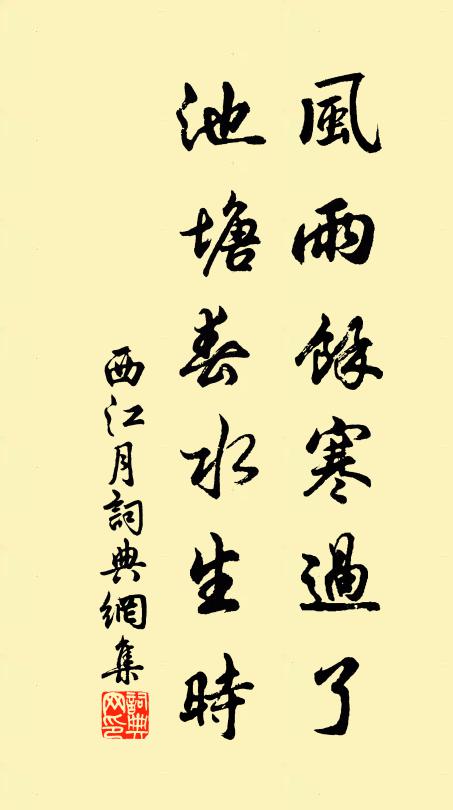 風雨餘寒過了
池塘春水生時
西江月詞典網集
詞典網印